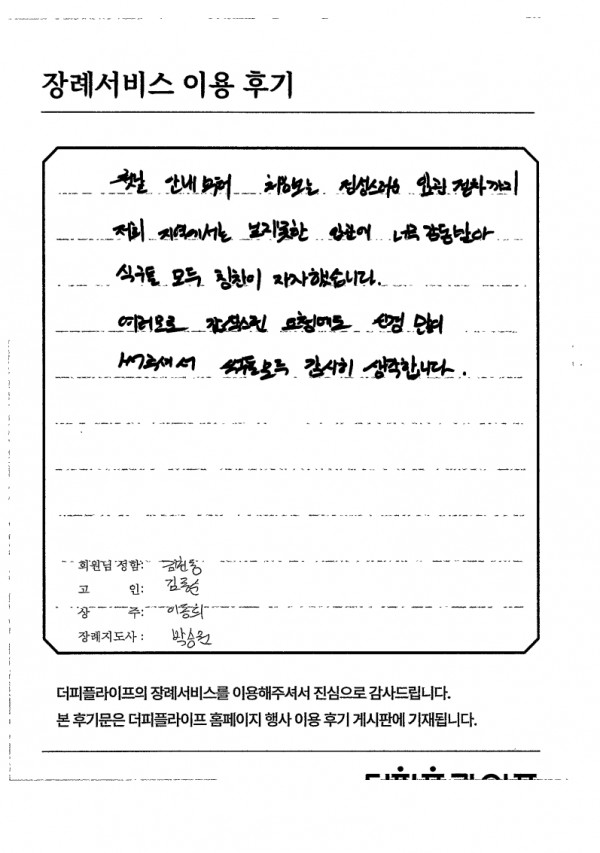 장례서비스 이용 후기
첫날 안내부터 처음보는 정성스러운 입관 절차까지
저희 지역에서는 보지못한 입관에 너무 감동받아
식구들 모두 칭찬이 자자했습니다.
여러모로 요청에도 신경
식구들모두 감사히 생각합니다.
회원님 성함:
고 인:
상 주: 이동희
장례지도사: 박승원
더피플라이프의 장례서비스를 이용해주셔서 진심으로 감사드립니다.
본 후기문은 더피플라이프 홈페이지 행사 이용 후기 게시판에 기재됩니다.
더피플라이프